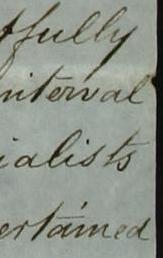 tfully
interval
ialists
ertained